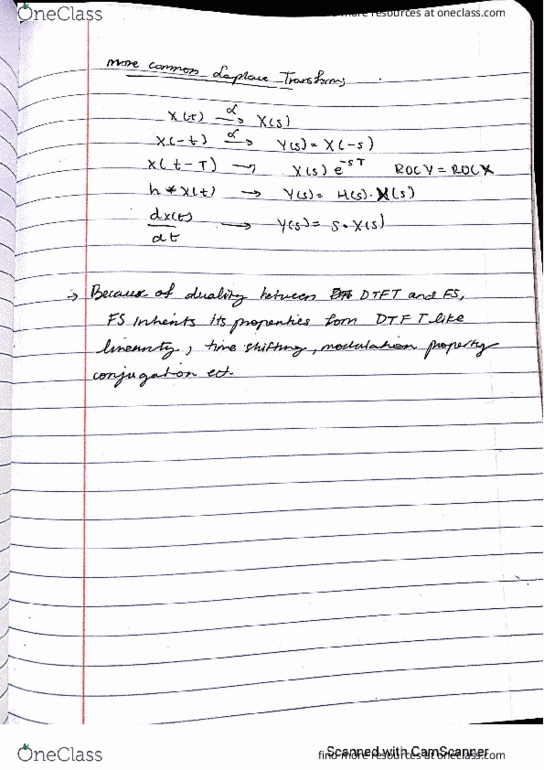 OneClass
find more resources at oneclass.com
more common Laplace Transforms
x(t) →ᴸ X(s)
x(-t) →ᴸ Y(s) = X(-s)
x(t-T) → X(s) e^-sT ROC Y = ROC X
h * x(t) → Y(s) = H(s) · X(s)
dx(t)/dt → Y(s) = s · X(s)
→ Because of duality between DTFT and FS,
FS inherits its properties from DTFT like
linearity, time shifting, modulation property
conjugation ect.
OneClass
find more resources at oneclass.com
Scanned with CamScanner